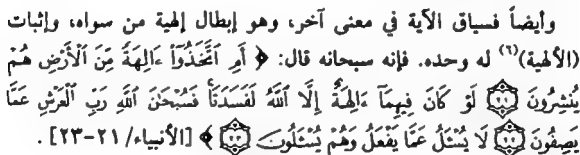 وأيضاً فسياق الآية في معنى آخر، وهو إبطال إلهية من سواه، وإثبات
(الألهية)(٦) له وحده. فإنه سبحانه قال: ﴿ أَمِ ٱتَّخَذُوٓا۟ ءَالِهَةً مِّنَ ٱلْأَرْضِ هُمْ
يُنشِرُونَ ٢١ لَوْ كَانَ فِيهِمَآ ءَالِهَةٌ إِلَّا ٱللَّهُ لَفَسَدَتَا فَسُبْحَٰنَ ٱللَّهِ رَبِّ ٱلْعَرْشِ عَمَّا
يَصِفُونَ ٢٢ لَا يُسْـَٔلُ عَمَّا يَفْعَلُ وَهُمْ يُسْـَٔلُونَ ٢٣ ﴾ [الأنبياء/ ٢١-٢٣].